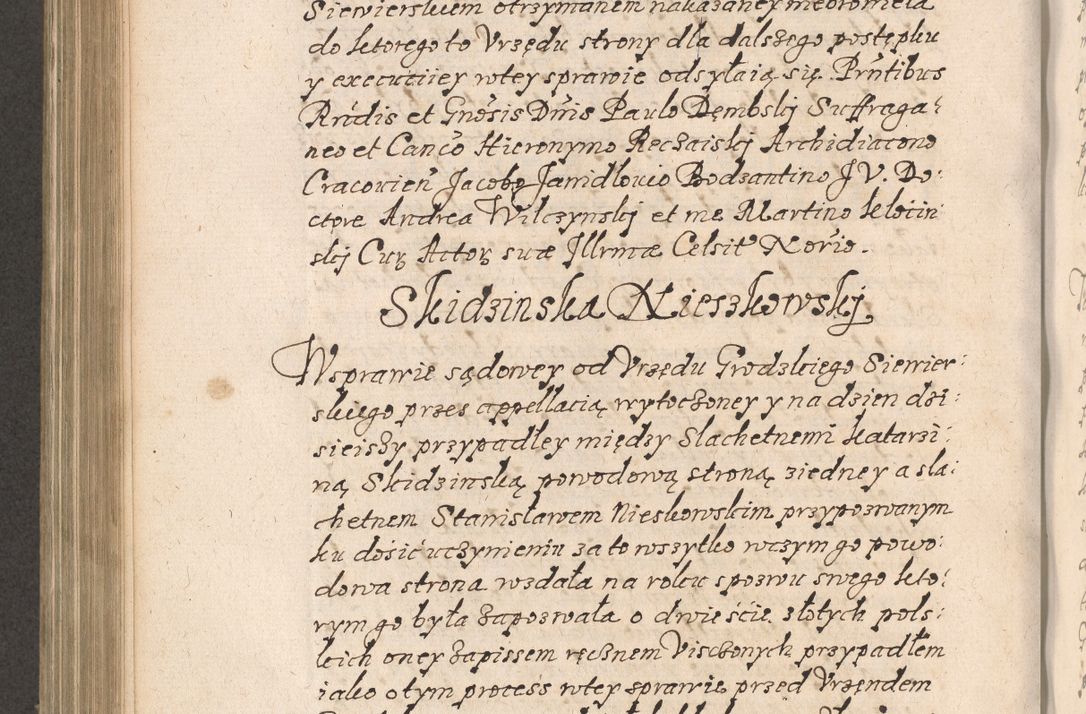 Siewierskiem otrzymanem nakazaney nieoroniela
do ktorego to Vrzędu strony dla dalszego postępku
y executiiey wtey sprawie odsyłaią się. Prńtibus
Rńdis et Gnosis Dńis Paulo Dembskj Suffraga:
neo et Canco Hieronymo Rechaiskj Archidiacono
Cracouień Jacobo Janidłouio Bodzantino J V. Do:
ctore Andrea Wilczynskj et me Martino Klocin
skj Cur Actor suæ Jllrmæ Celsit Norio.
Skidzinska Nieszkowskj
Wsprawie sądowey od Vrzędu Grodzkiego Siewier:
skiego przes appellacią wytoczoney y na dzien dzi:
sieiszy przypadłey między Slachetnemi Katarzi:
ną Skidzinską powodową stroną ziedney a sla:
chetnem Stanisławem Nieskowskim przypozwanym
ku dosić uczynieniu za to wszytko wczym go powo:
dowa strona wzdała na roku spozwu swego kto:
rym go była zapozwała o dwieście złotych pols:
kich oney zapissem ręcznem Visczonych przypadłem
iako o tym process wtey sprawie przed Vrzendem